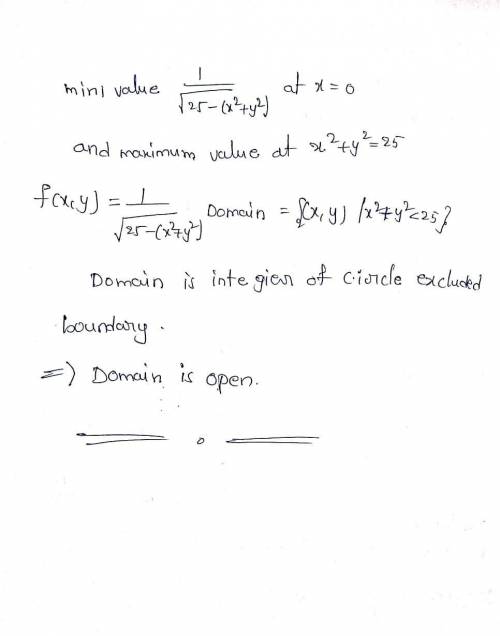 mini value 1/√25-(x²+y²) at x=0
and maximum value at x²+y²=25
f(x,y) = 1/√25-(x²+y²) Domain = {(x,y) /x²+y²<25}
Domain is integier of circle excluded
boundary.
=) Domain is open.